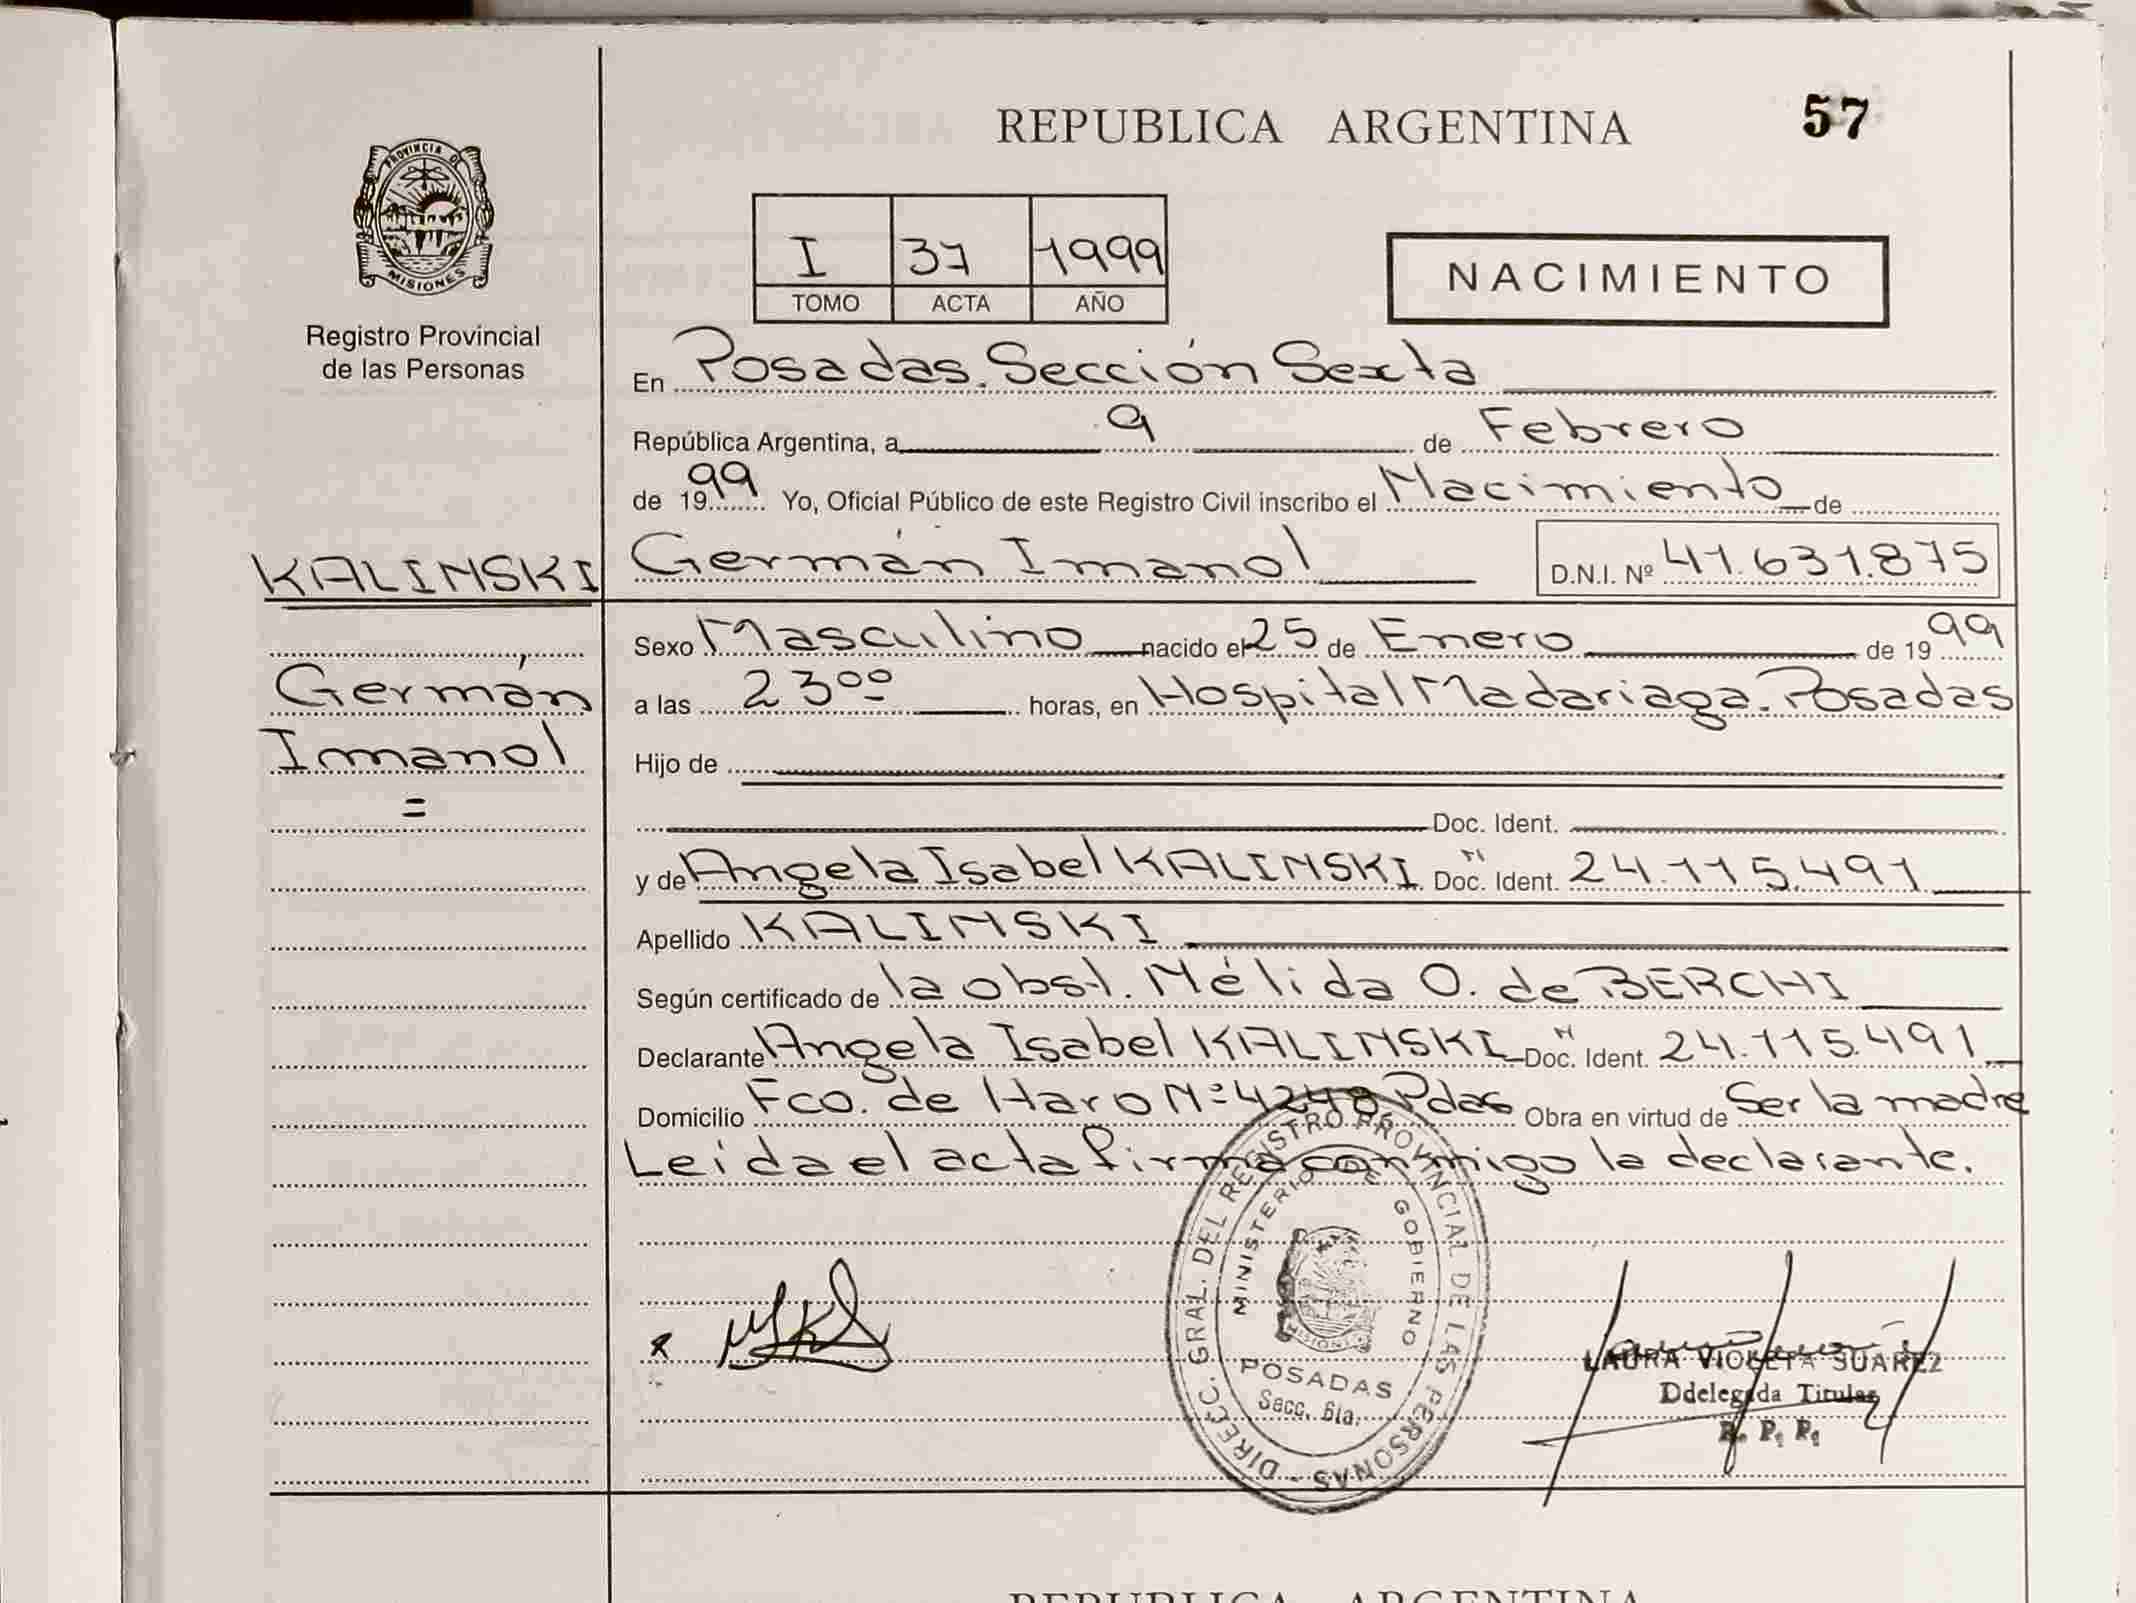 57
REPUBLICA ARGENTINA
PROVINCIA DE
MISIONES
Registro Provincial
de las Personas
I 37 1999
TOMO ACTA AÑO
NACIMIENTO
En Posadas. Sección Sexta
República Argentina, a 9 de Febrero
de 1999 Yo, Oficial Público de este Registro Civil inscribo el Nacimiento de
KALINSKI
Germán
Imanol
=
Germán Imanol D.N.I. Nº 41.631.875
Sexo Masculino nacido el 25 de Enero de 1999
a las 23⁰⁰ horas, en Hospital Madariaga. Posadas
Hijo de
Doc. Ident.
y de Angela Isabel KALINSKI. Doc. Ident. 24.115.491
Apellido KALINSKI
Según certificado de la obst. Nélida O. de BERCHI
Declarante Angela Isabel KALINSKI Doc. Ident. 24.115.491
Domicilio Fco. de Haro Nº 4248 Pdas Obra en virtud de Ser la madre
Leida el acta firma conmigo la declarante.
DIRECC. GRAL. DEL REGISTRO PROVINCIAL DE LAS PERSONAS -
MINISTERIO DE GOBIERNO
MISIONES
POSADAS
Secc. 6ta.
LAURA VIOLETA SUAREZ
Ddelegada Titular
R. P. P.
REPUBLICA ARGENTINA